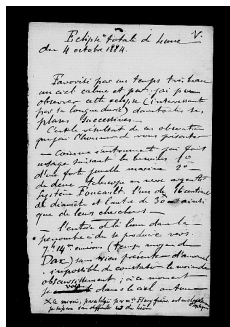 Eclipse totale de lune V.
du 4 octobre 1884.
Favorisé par un temps très beau
un ciel calme et pur, j'ai pu
observer cette éclipse (intéressant
par sa longue durée) dans toutes ses
phases successives.
C'est le résultat de ces observations
que l'honneur de vous présenter
Comme instruments j'ai fait
usage suivant les besoins 1º
d'un fort jumelle marine 2º
de deux télescopes en verre argenté
système Foucault l'un de 16 centimètres
de diamètre et l'autre de 30
que de leurs chercheurs
L'entrée de la lune dans la
pénombre a dû se produire vers
7h 14m environ (temps moyen de
Dax) sans rien présenter d'anormal
impossible de constater le moindre
obscurcissement
dans le ciel autour
La mairie, par